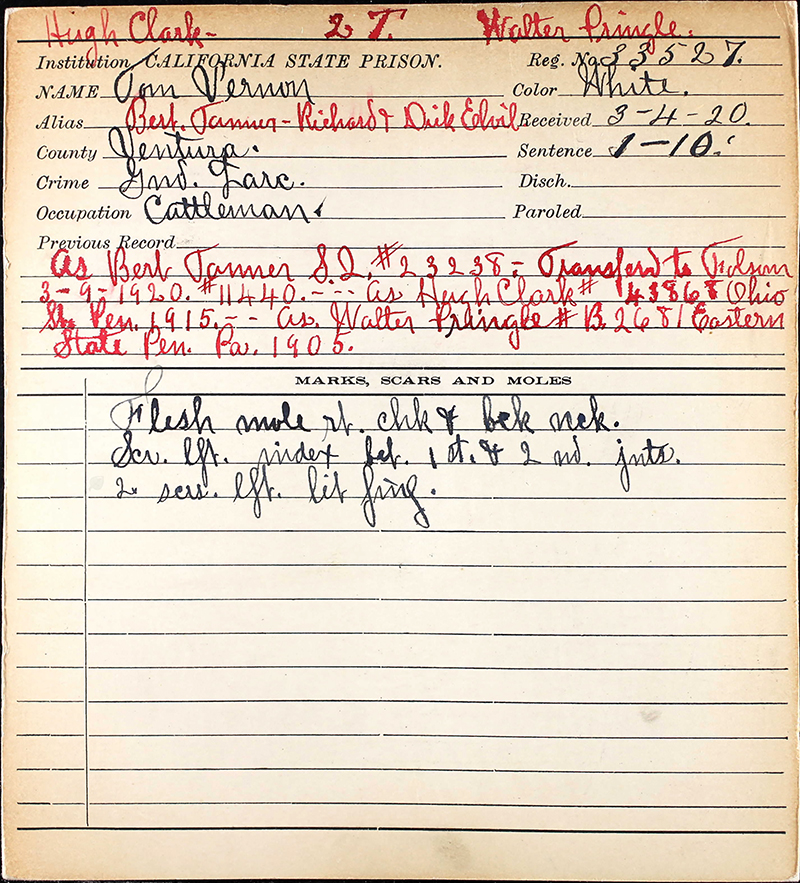 Hugh Clark- 2 T. Walter Pringle.
Institution CALIFORNIA STATE PRISON. Reg. No. 33527.
NAME Tom Vernon Color White.
Alias Bert. Tanner - Richard & Dick Elvil Received 3-4-20.
County Ventura. Sentence 1-10.
Crime Gnd. Larc. Disch.
Occupation Cattleman. Paroled
Previous Record
As Bert Tanner S.Q. #23238 - Transferd to Folsom
3-9-1920. #11440. --- As Hugh Clark # 43868 Ohio
St. Pen. 1915. -- As. Walter Pringle # B. 2681 Eastern
State Pen. Pa. 1905.
MARKS, SCARS AND MOLES
Flesh mole rt. chk & bck nck.
Scr. lft. index bet. 1 st. & 2 nd. jnts.
2 scrs. lft. lit fing.